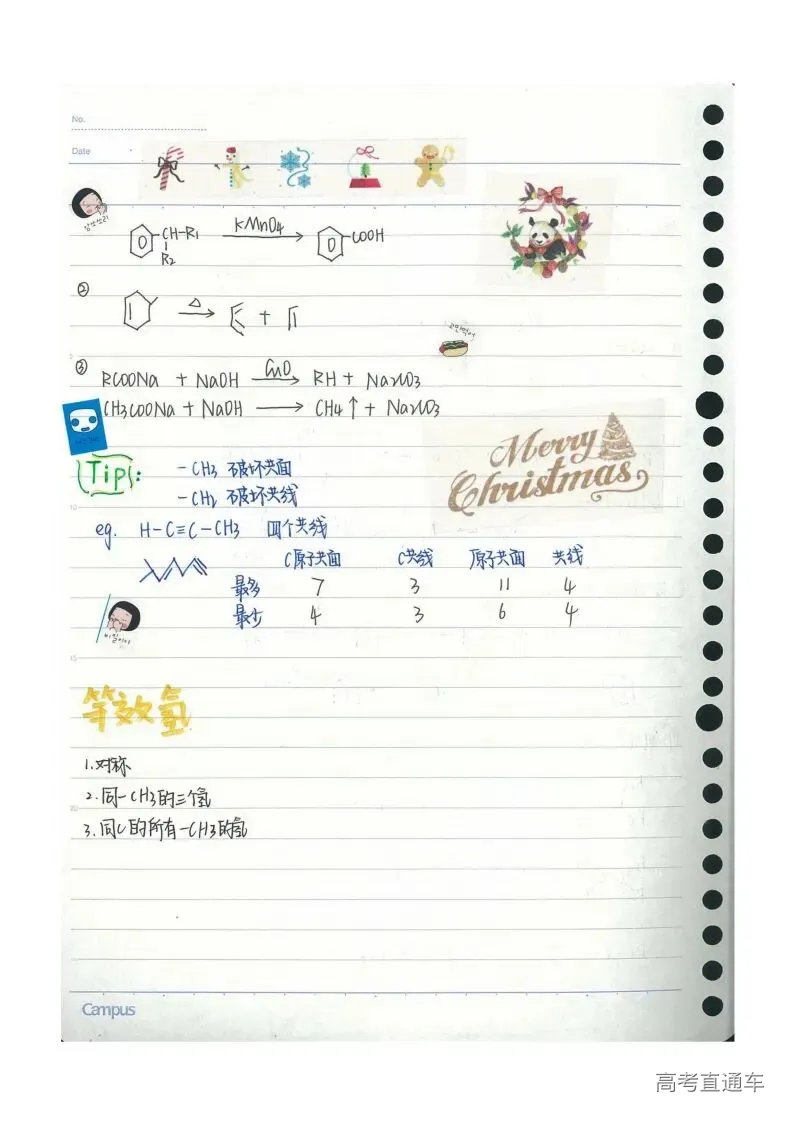 No.
Date
CH-R1 KMnO4 COOH
R2
②
△
+
③
RCOONa + NaOH CaO RH + Na2CO3
CH3COONa + NaOH → CH4↑ + Na2CO3
Tip: -CH3 破坏共面
-CH2 破坏共线
eg. H-C≡C-CH3 四个共线
C原子共面 C共线 原子共面 共线
最多 7 3 11 4
最少 4 3 6 4
Merry
Christmas
等效氢
1.对称
2.同一CH3的三个氢
3.同C的所有-CH3的氢
Campus
高考直通车